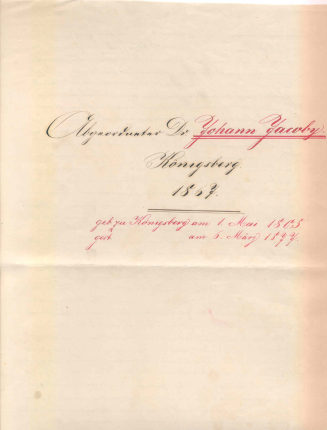 Abgeordneter Dr Johann Jacoby.
Königsberg.
1867.
geb. zu Königsberg am 1. Mai 1805
gest. am 5. März 1877.